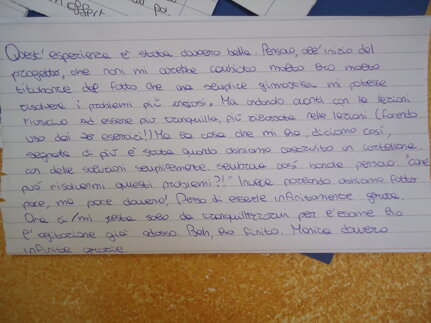 Quest' esperienza è stata davvero bella. Pensavo, all'inizio del
progetto, che non mi avrebbe cambiato molto. Ero molto
titubante del fatto che una semplice ginnastica mi potesse
risolvere i problemi più insiosi. Ma andando avanti con le lezioni
riuscivo ad essere più tranquilla, più rilassata nelle lezioni (facendo
uso dei esercizi!! Ma la cosa che mi ha, diciamo così,
segnata di più è stata quando abbiamo costruito un cartellone
con delle soluzioni semplicemente sembrava così banale pensavo: "Come
può risolvermi questi problemi?!" Invece parlando abbiamo fatto
pace, ma pace davvero! Penso di esserle infinitamente grata.
Ora ci/mi resta solo da tranquillizzarmi per l'esame. Ho
l'agitazione già adosso. Beh, ho finito. Monica davvero
infinite grazie.